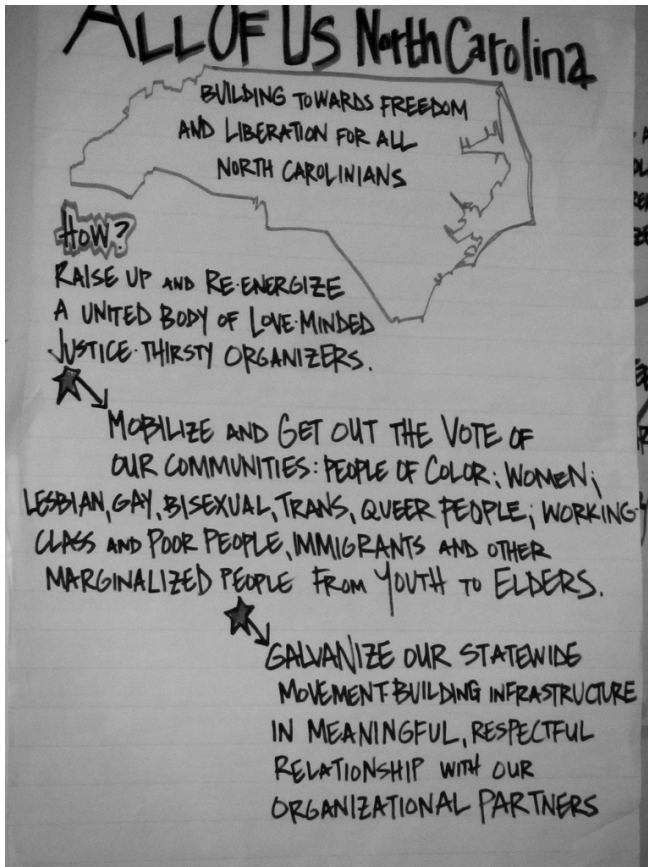 ALL OF US North Carolina
BUILDING TOWARDS FREEDOM
AND LIBERATION FOR ALL
NORTH CAROLINIANS
HOW?
RAISE UP AND RE-ENERGIZE
A UNITED BODY OF LOVE-MINDED
JUSTICE-THIRSTY ORGANIZERS.
MOBILIZE AND GET OUT THE VOTE OF
OUR COMMUNITIES: PEOPLE OF COLOR; WOMEN;
LESBIAN, GAY, BISEXUAL, TRANS, QUEER PEOPLE; WORKING-
CLASS AND POOR PEOPLE, IMMIGRANTS AND OTHER
MARGINALIZED PEOPLE FROM YOUTH TO ELDERS.
GALVANIZE OUR STATEWIDE
MOVEMENT-BUILDING INFRASTRUCTURE
IN MEANINGFUL, RESPECTFUL
RELATIONSHIP WITH OUR
ORGANIZATIONAL PARTNERS